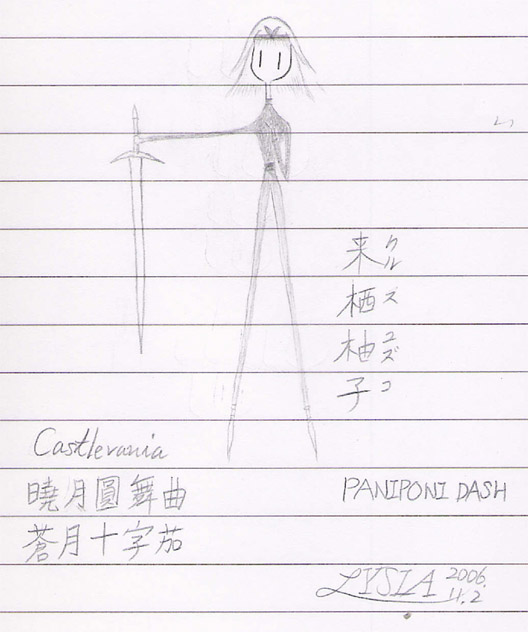 来栖柚子
クルスユズコ
Castlevania
曉月圓舞曲
蒼月十字茄
PANIPONI DASH
LYSIA 2006.
11.2